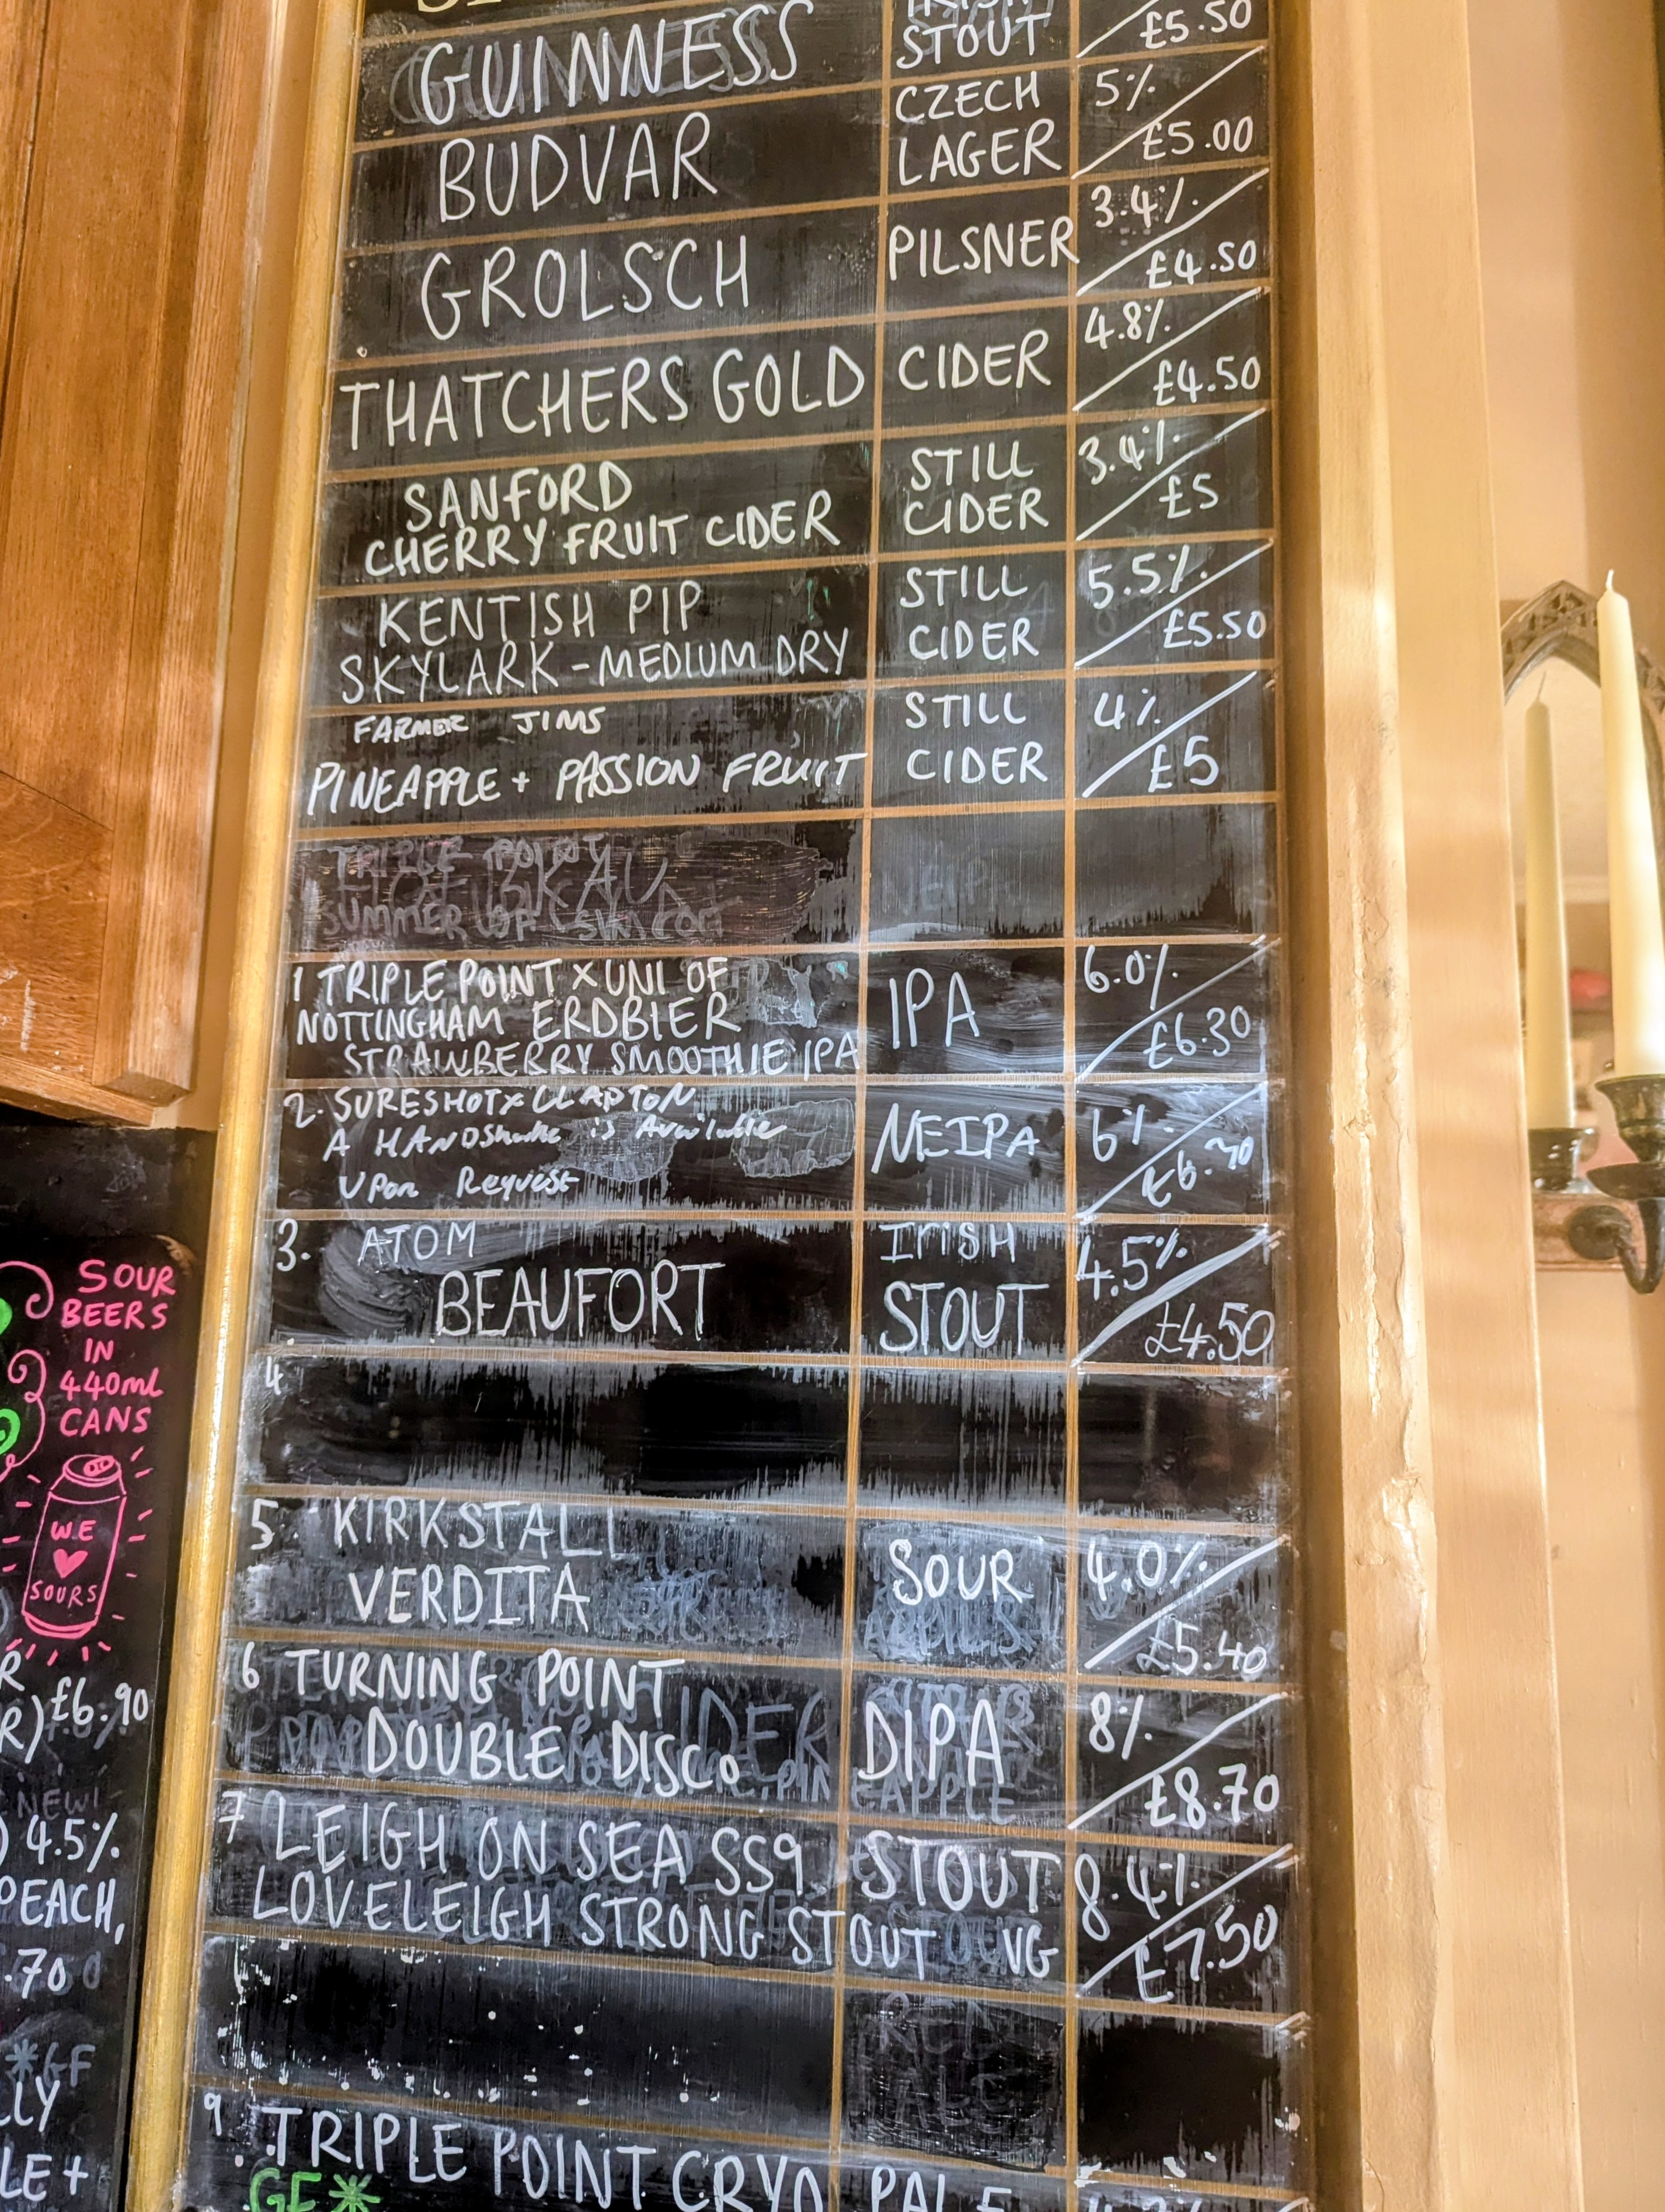 GUINNESS
STOUT
£5.50
BUDVAR
CZECH
LAGER
5%
£5.00
GROLSCH
PILSNER
3.4%
£4.50
THATCHERS GOLD
CIDER
4.8%
£4.50
SANFORD
CHERRY FRUIT CIDER
STILL
CIDER
3.4%
£5
KENTISH PIP
SKYLARK - MEDIUM DRY
STILL
CIDER
5.5%
£5.50
FARMER JIMS
PINEAPPLE + PASSION FRUIT
STILL
CIDER
4%
£5
TRIPLE POINT
SUMMER OF
1 TRIPLE POINT X UNI OF
NOTTINGHAM ERDBIER
STRAWBERRY SMOOTHIE IPA
IPA
6.0%
£6.30
2. SURESHOT X CLAPTON
A HANDShake is Available
Upon Request
NEIPA
6%
3. ATOM
BEAUFORT
IrisH
STOUT
4.5%
£4.50
4
5. KIRKSTALL
VERDITA
SOUR
4.0%
£5.40
6 TURNING POINT
DOUBLE DISCO
DIPA
8%
£8.70
7 LEIGH ON SEA SS9
LOVELEIGH STRONG STOUT VG
STOUT
8.4%
£7.50
9. TRIPLE POINT CRYO
GF*
PALE
SOUR
BEERS
IN
440mL
CANS
WE
SOURS
£6.90
NEW!
4.5%
PEACH,
.70
*GF